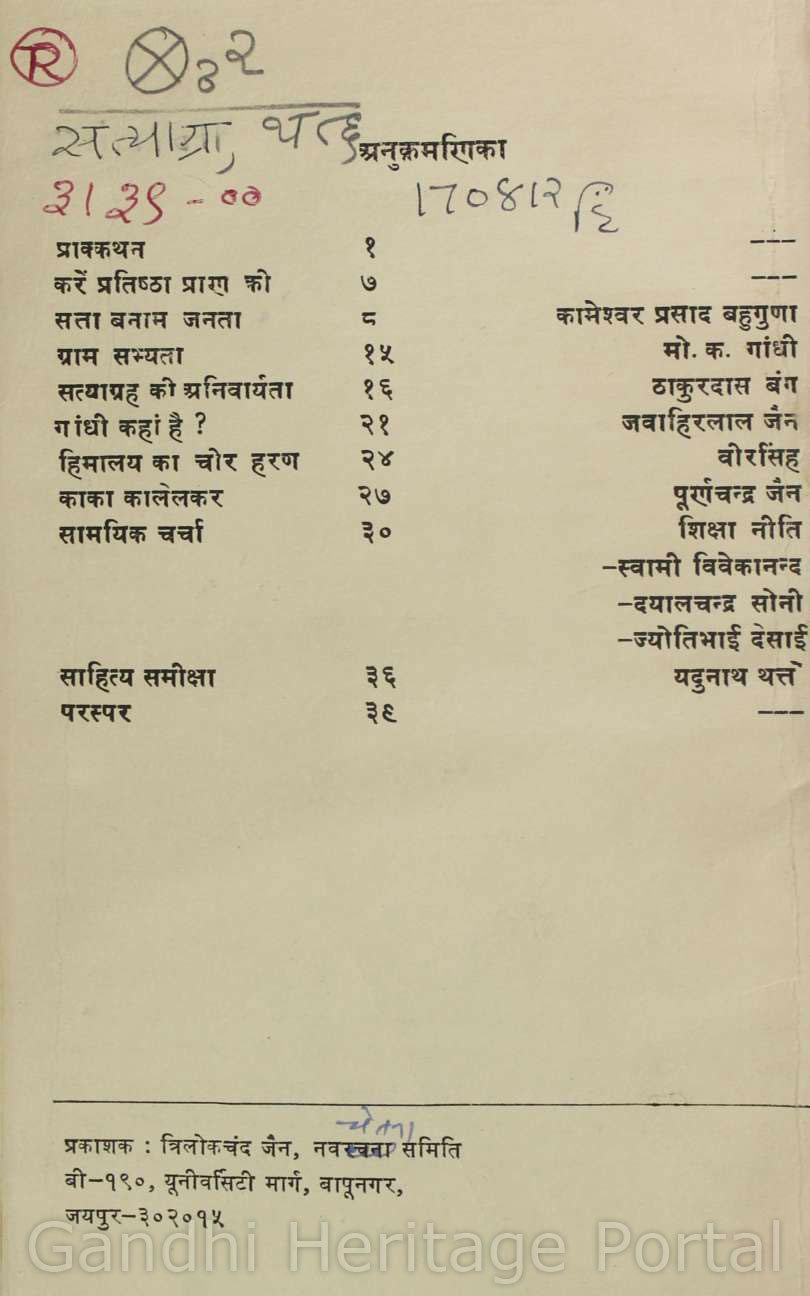 R
२
अनुक्रमणिका
३।३९ - ००
170812
प्राक्कथन १ ---
करें प्रतिष्ठा प्राण की ७ ---
सत्ता बनाम जनता ८ कामेश्वर प्रसाद बहुगुणा
ग्राम सभ्यता १५ मो. क. गांधी
सत्याग्रह की अनिवार्यता १६ ठाकुरदास बंग
गांधी कहां है ? २१ जवाहिरलाल जैन
हिमालय का चीर हरण २४ वीरसिंह
काका कालेलकर २७ पूर्णचन्द्र जैन
सामयिक चर्चा ३० शिक्षा नीति
–स्वामी विवेकानन्द
–दयालचन्द्र सोनी
–ज्योतिभाई देसाई
साहित्य समीक्षा ३६ यदुनाथ थत्ते
परस्पर ३९ ---
चेतना
प्रकाशक : त्रिलोकचंद जैन, नवरचना समिति
बी–१९०, यूनीवर्सिटी मार्ग, बापूनगर,
जयपुर–३०२०१५
Gandhi Heritage Portal